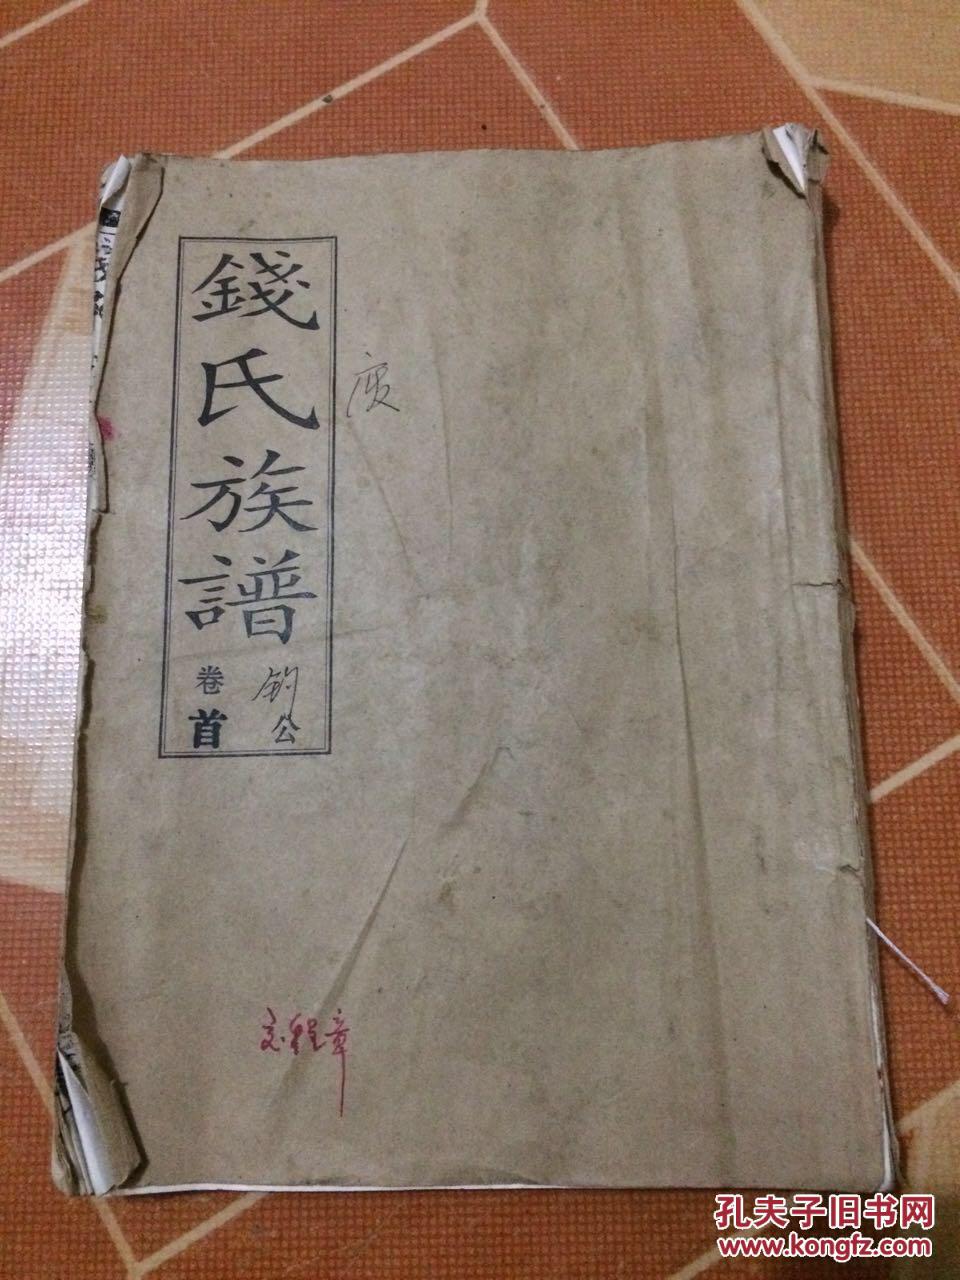 錢氏族譜
卷首
鈞公
孔夫子旧书网
www.kongfz.com